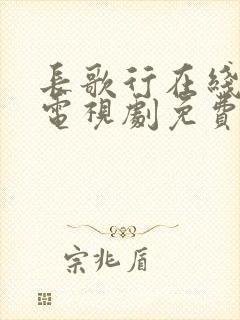 長歌行在綫
電視劇免費
宗兆盾